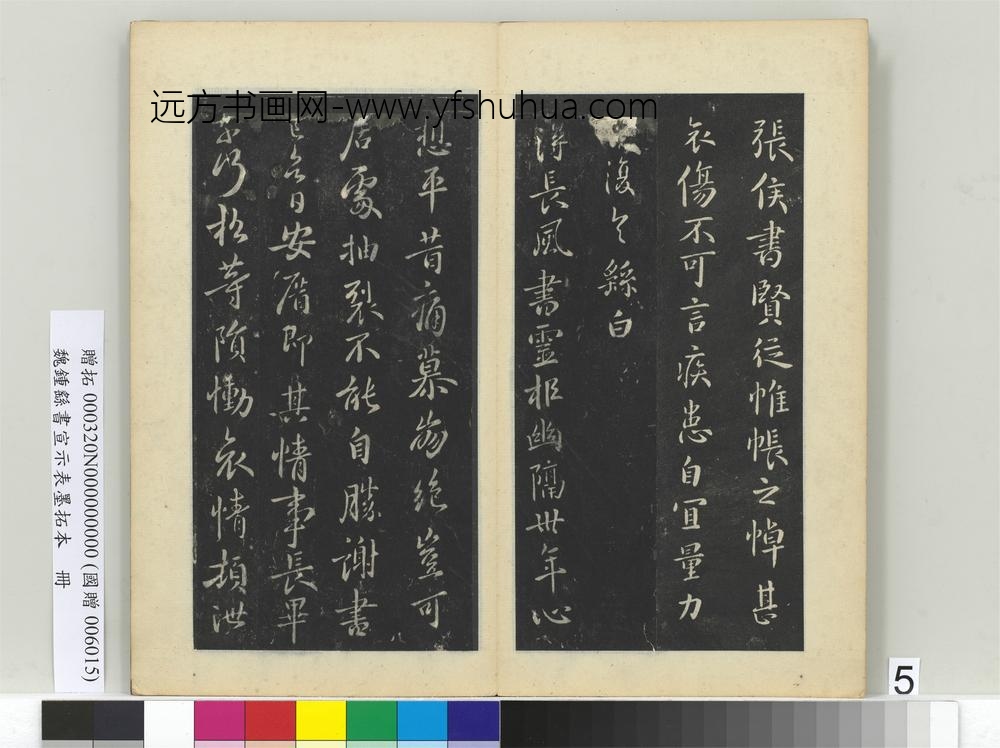 远方书画网-www.yfshuhua.com
張侯書賢從帷帳之悼甚
哀傷不可言疾患自宜量力
復
繇白
得長風書靈柩幽隔卅年心
想平昔痛慕崩絶豈可
居處抽裂不能自勝謝書
日安厝即其情事長畢
松等隕慟哀情頓泄
贈拓 000320N000000000 (國贈 006015)
魏鍾繇書宣示表墨拓本 冊
5